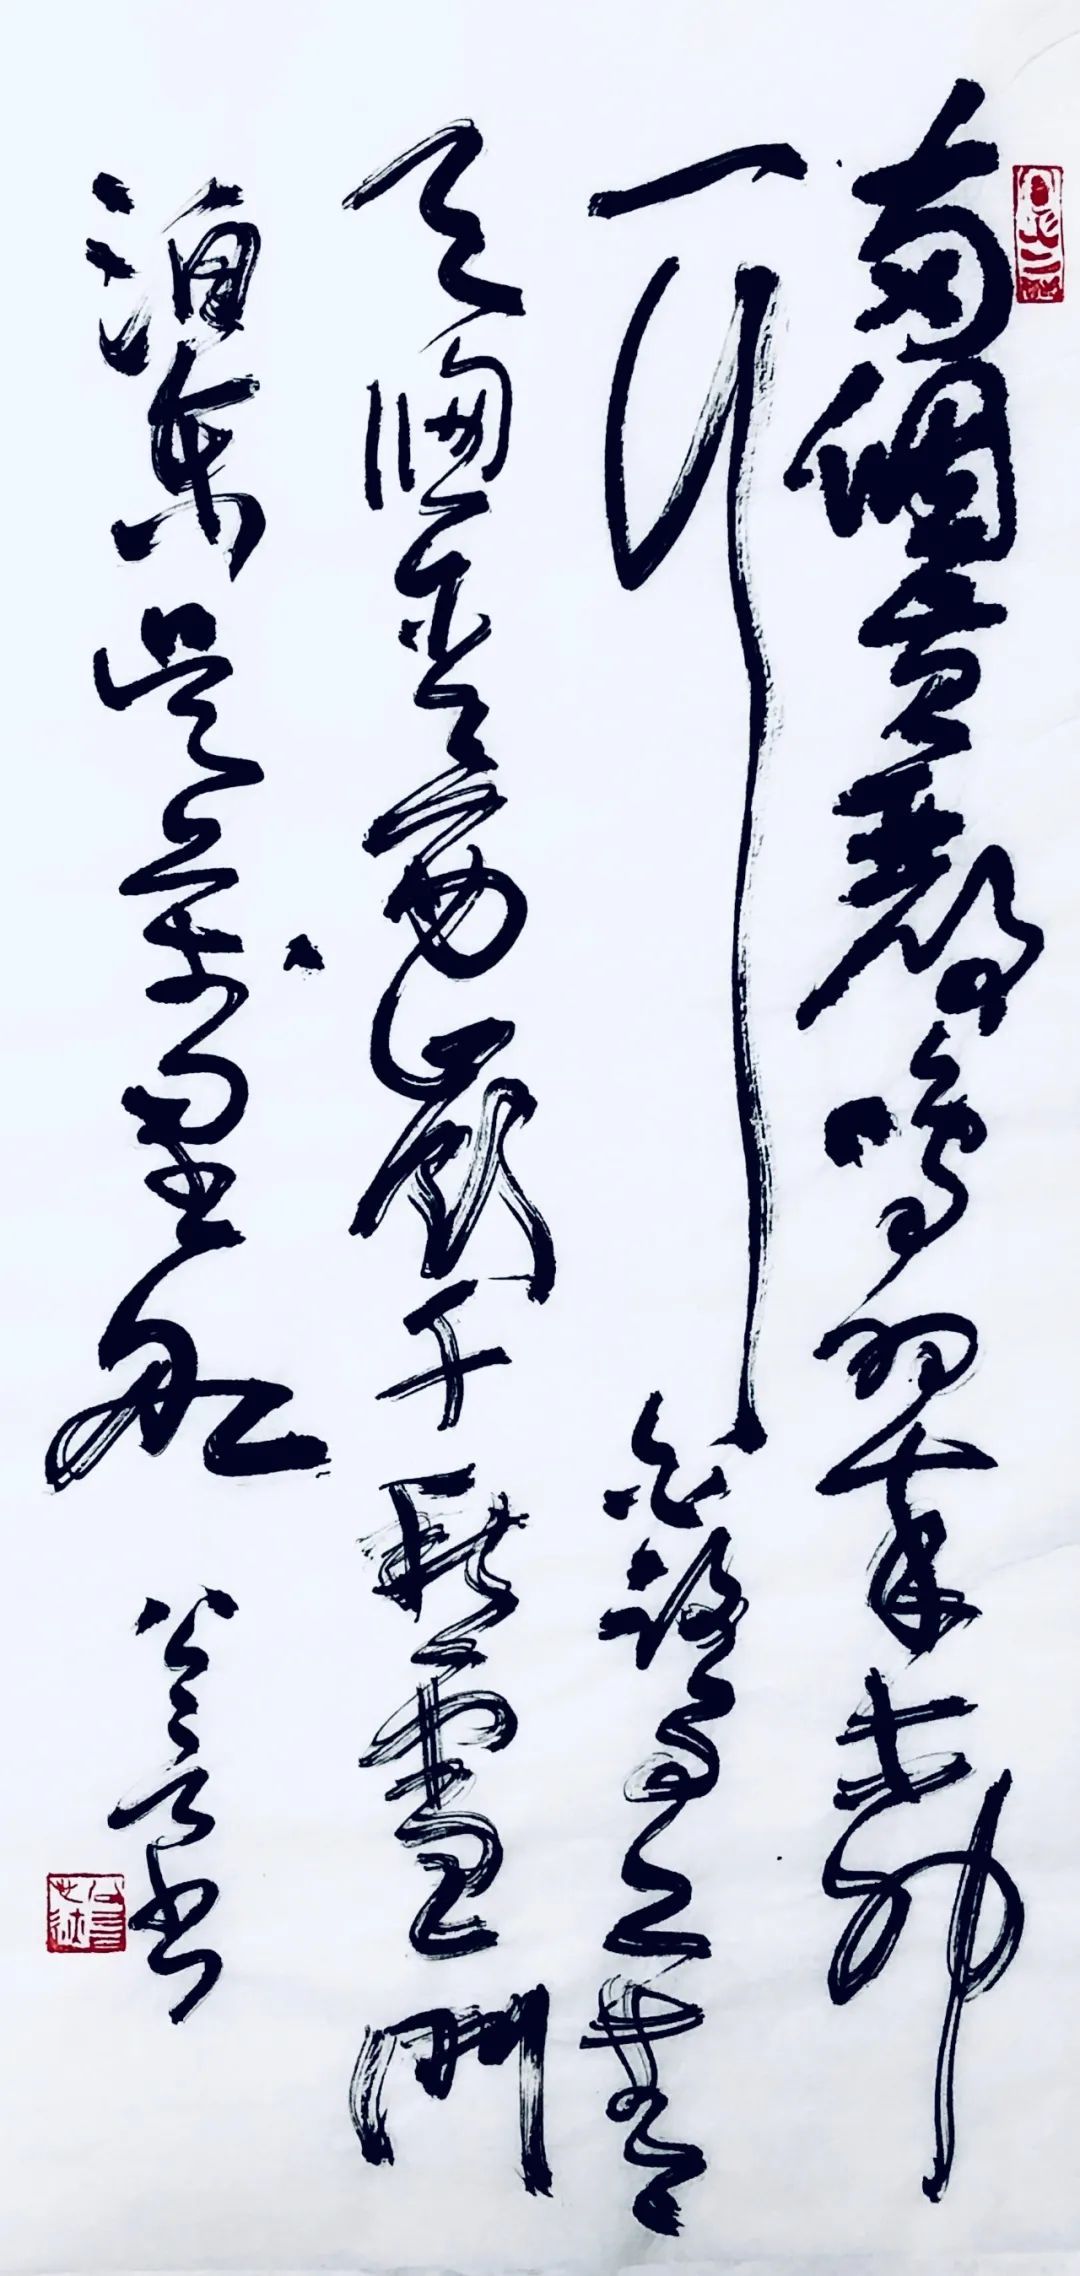 兩個黄鸝鳴翠柳
一行白鷺上青
天窗含西嶺千秋雪門
泊東吴萬里船
書